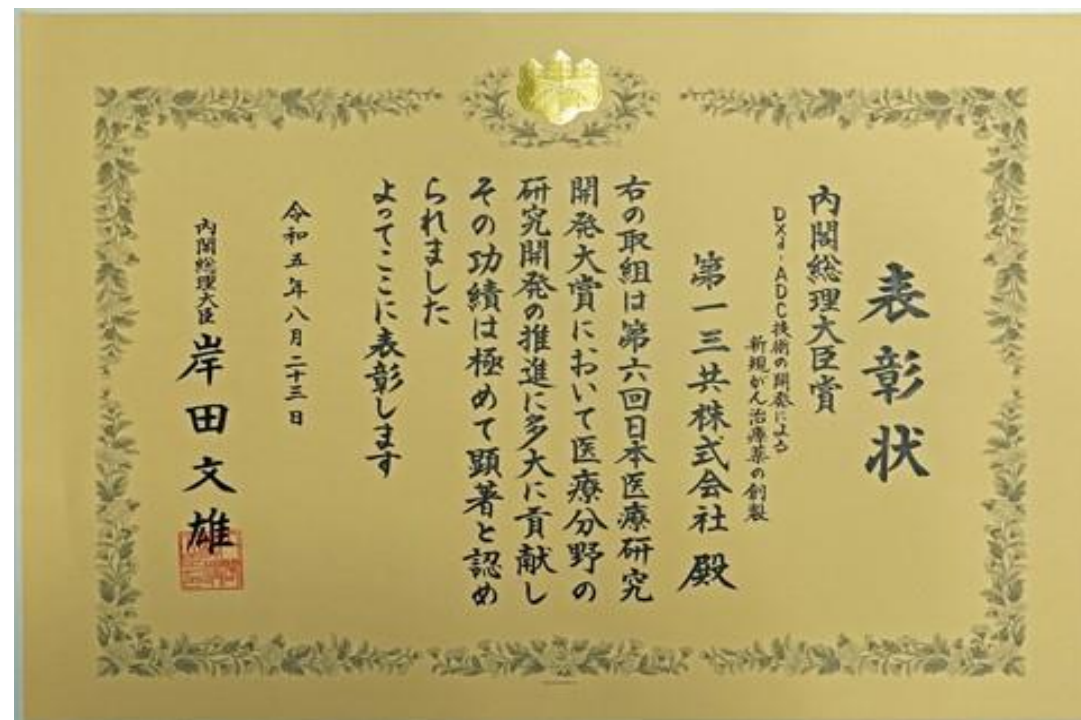 表彰状
内閣総理大臣賞
DXd-ADC技術の開発による
新規がん治療薬の創製
第一三共株式会社 殿
右の取組は第六回日本医療研究
開発大賞において医療分野の
研究開発の推進に多大に貢献し
その功績は極めて顕著と認め
られました
よってここに表彰します
令和五年八月二十三日
内閣総理大臣 岸田文雄